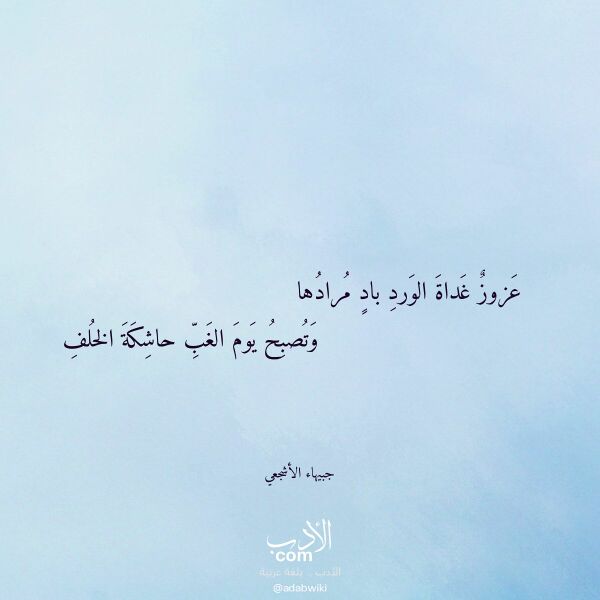 عَزوزٌ غَداةَ الوَردِ بادٍ مُرادُها
وَتُصبِحُ يَومَ الغَبِّ حاشِكَةَ الخُلفِ
جبيهاء الأشجعي
الأدب
com
الأدب .. بلغة عربية
@adabwiki